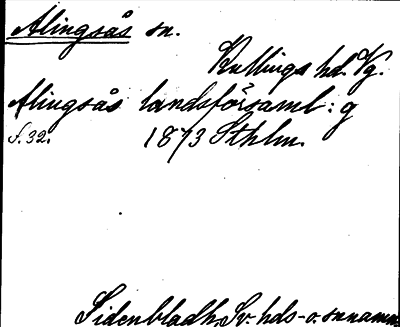 Alingsås sn.
Kullings hd. Vg.
Alingsås landsförsaml:g
s. 32. 1873 Sthlm.
Sidenbladh, Sv. hds- o. snnamn